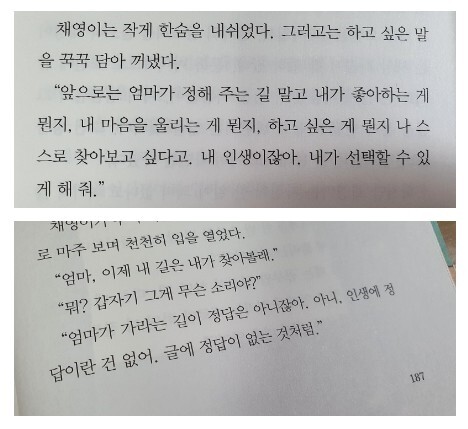 채영이는 작게 한숨을 내쉬었다. 그러고는 하고 싶은 말
을 꾹꾹 담아 꺼냈다.
“앞으로는 엄마가 정해 주는 길 말고 내가 좋아하는 게
뭔지, 내 마음을 울리는 게 뭔지, 하고 싶은 게 뭔지 나 스
스로 찾아보고 싶다고. 내 인생이잖아. 내가 선택할 수 있
게 해 줘.”
채영이가
로 마주 보며 천천히 입을 열었다.
“엄마, 이제 내 길은 내가 찾아볼래.”
“뭐? 갑자기 그게 무슨 소리야?”
“엄마가 가라는 길이 정답은 아니잖아. 아니, 인생에 정
답이란 건 없어. 글에 정답이 없는 것처럼.”
187